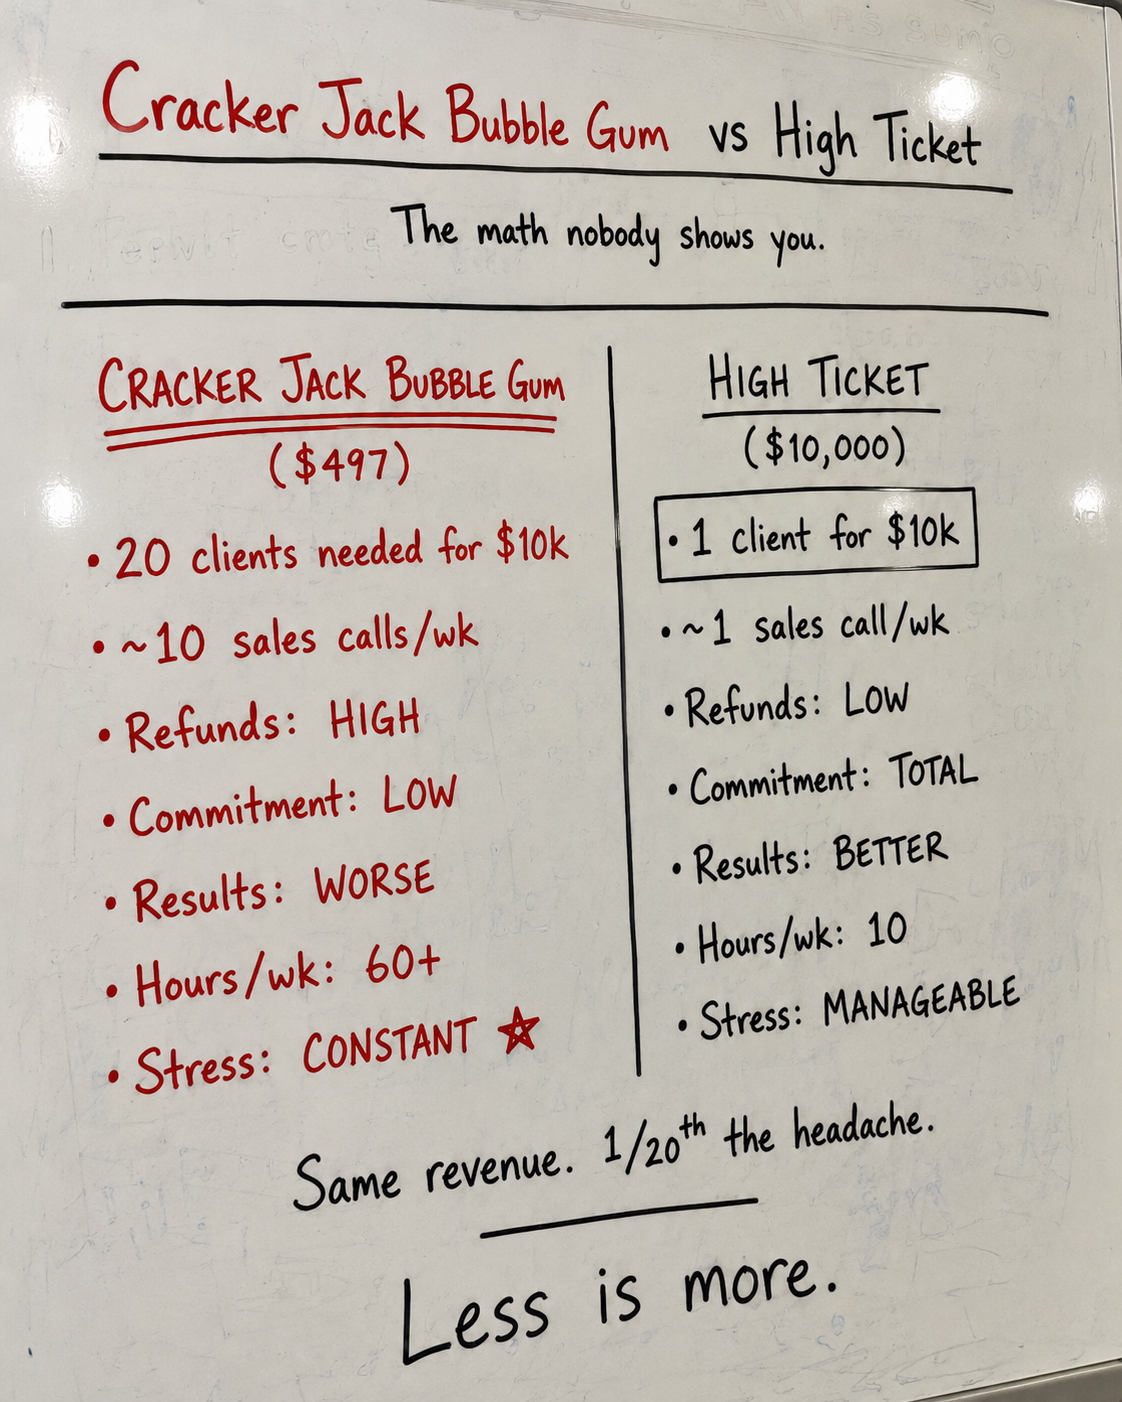 Cracker Jack Bubble Gum vs High Ticket
The math nobody shows you.
CRACKER JACK BUBBLE GUM
($497)
• 20 clients needed for $10k
• ~10 sales calls/wk
• Refunds: HIGH
• Commitment: LOW
• Results: WORSE
• Hours/wk: 60+
• Stress: CONSTANT ☆
HIGH TICKET
($10,000)
• 1 client for $10k
• ~1 sales call/wk
• Refunds: LOW
• Commitment: TOTAL
• Results: BETTER
• Hours/wk: 10
• Stress: MANAGEABLE
Same revenue. 1/20th the headache.
Less is more.